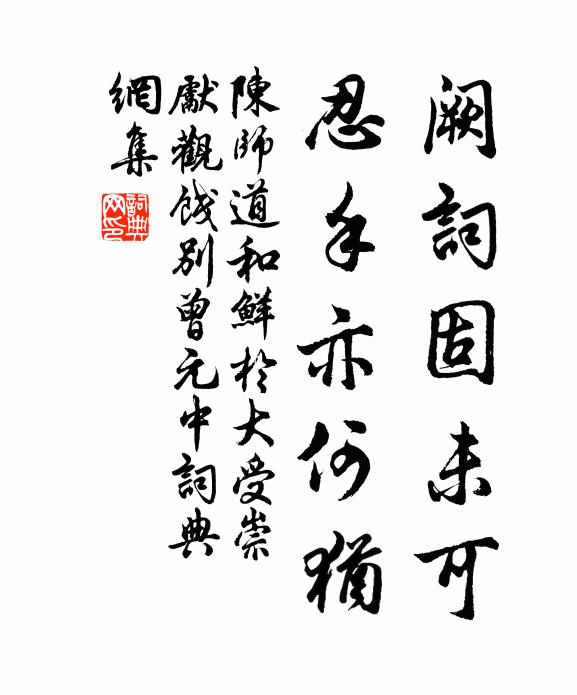 阙詞固未可
忍手亦何猶
陳師道和鮮於大受崇
獻觀餞別曾元中詞典
網集
詞典網印